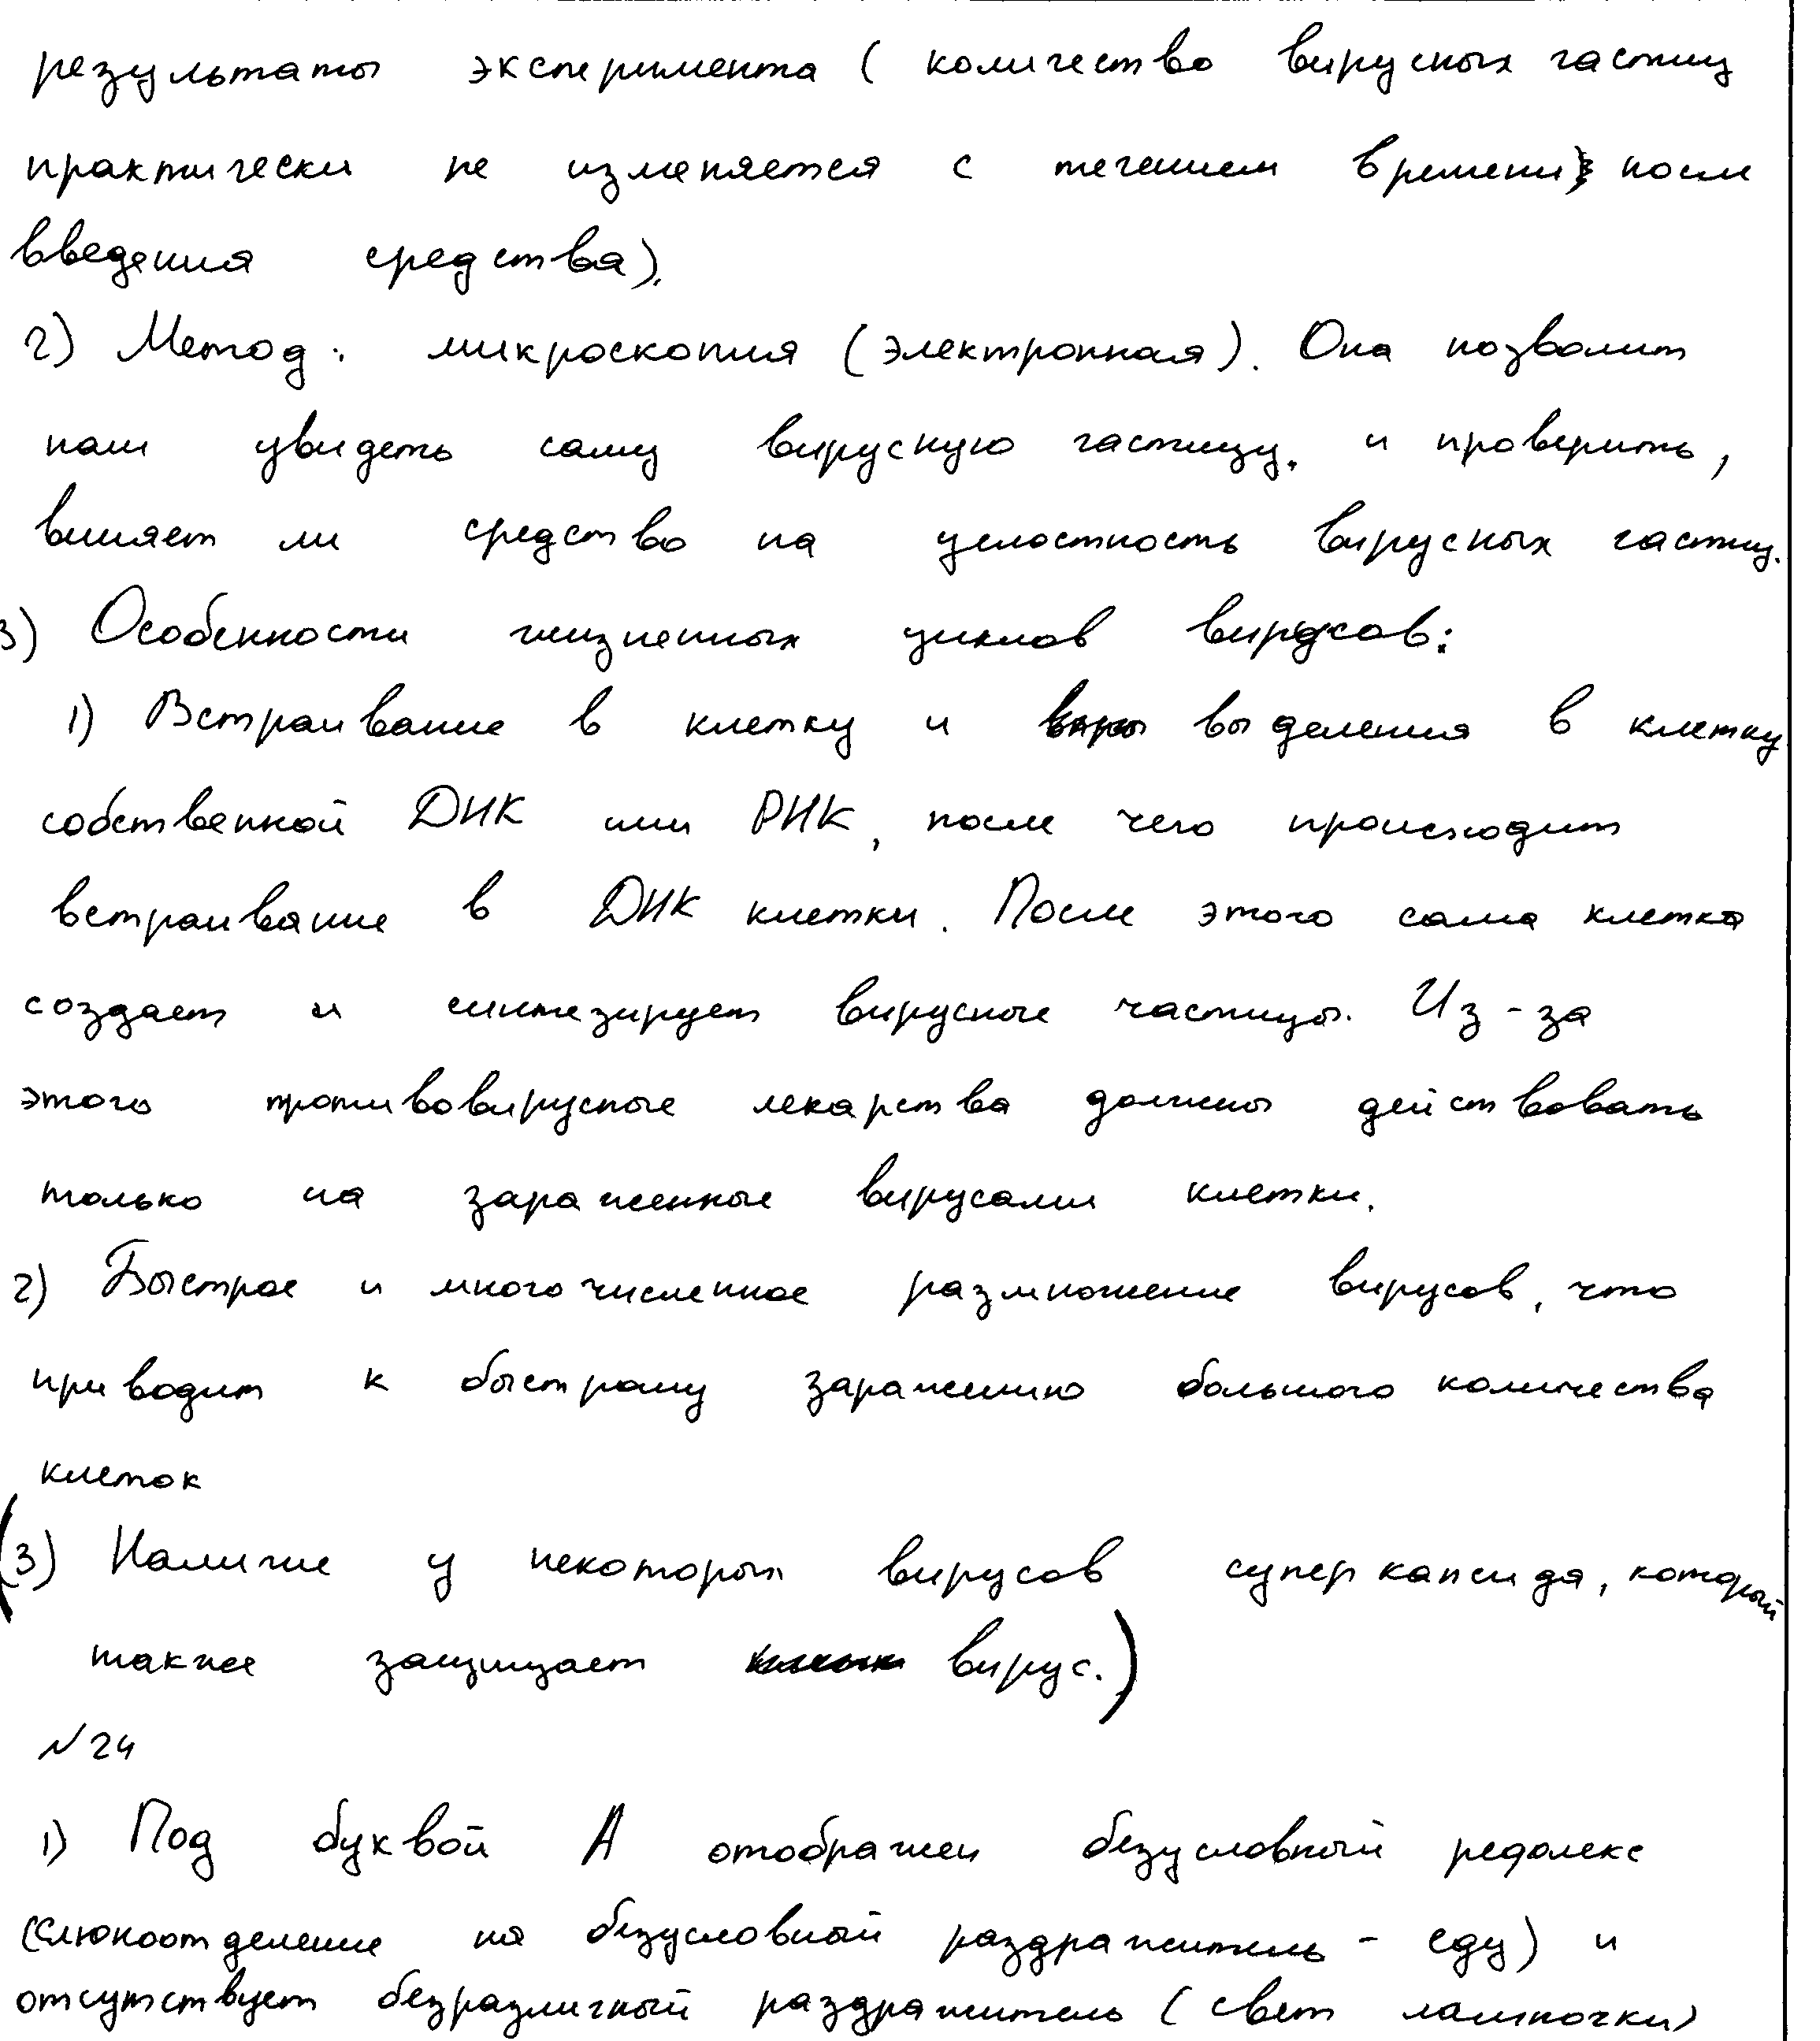 результаты эксперимента ( количество вирусных частиц
практически не изменяется с течением времени после
введения средства).
2) Метод: микроскопия (электронная). Она позволит
нам увидеть саму вирусную частицу. и проверить,
влияет ли средство на целостность вирусных частиц.
3) Особенности жизненных циклов вирусов:
1) Встраивание в клетку и выделения в клетку
собственной ДНК или РНК, после чего происходит
встраивание в ДНК клетки. После этого сама клетка
создает и синтезирует вирусные частицы. Из-за
этого противовирусные лекарства должны действовать
только на зараженные вирусами клетки.
2) Быстрое и многочисленное размножение вирусов, что
приводит к быстрому заражению большого количества
клеток
(3) Наличие у некоторых вирусов суперкапсида, который
также защищает вирус.)
№24
1) Под буквой А отображен безусловный рефлекс
(слюноотделение на безусловный раздражитель - еду) и
отсутствует безразличный раздражитель (свет лампочки)